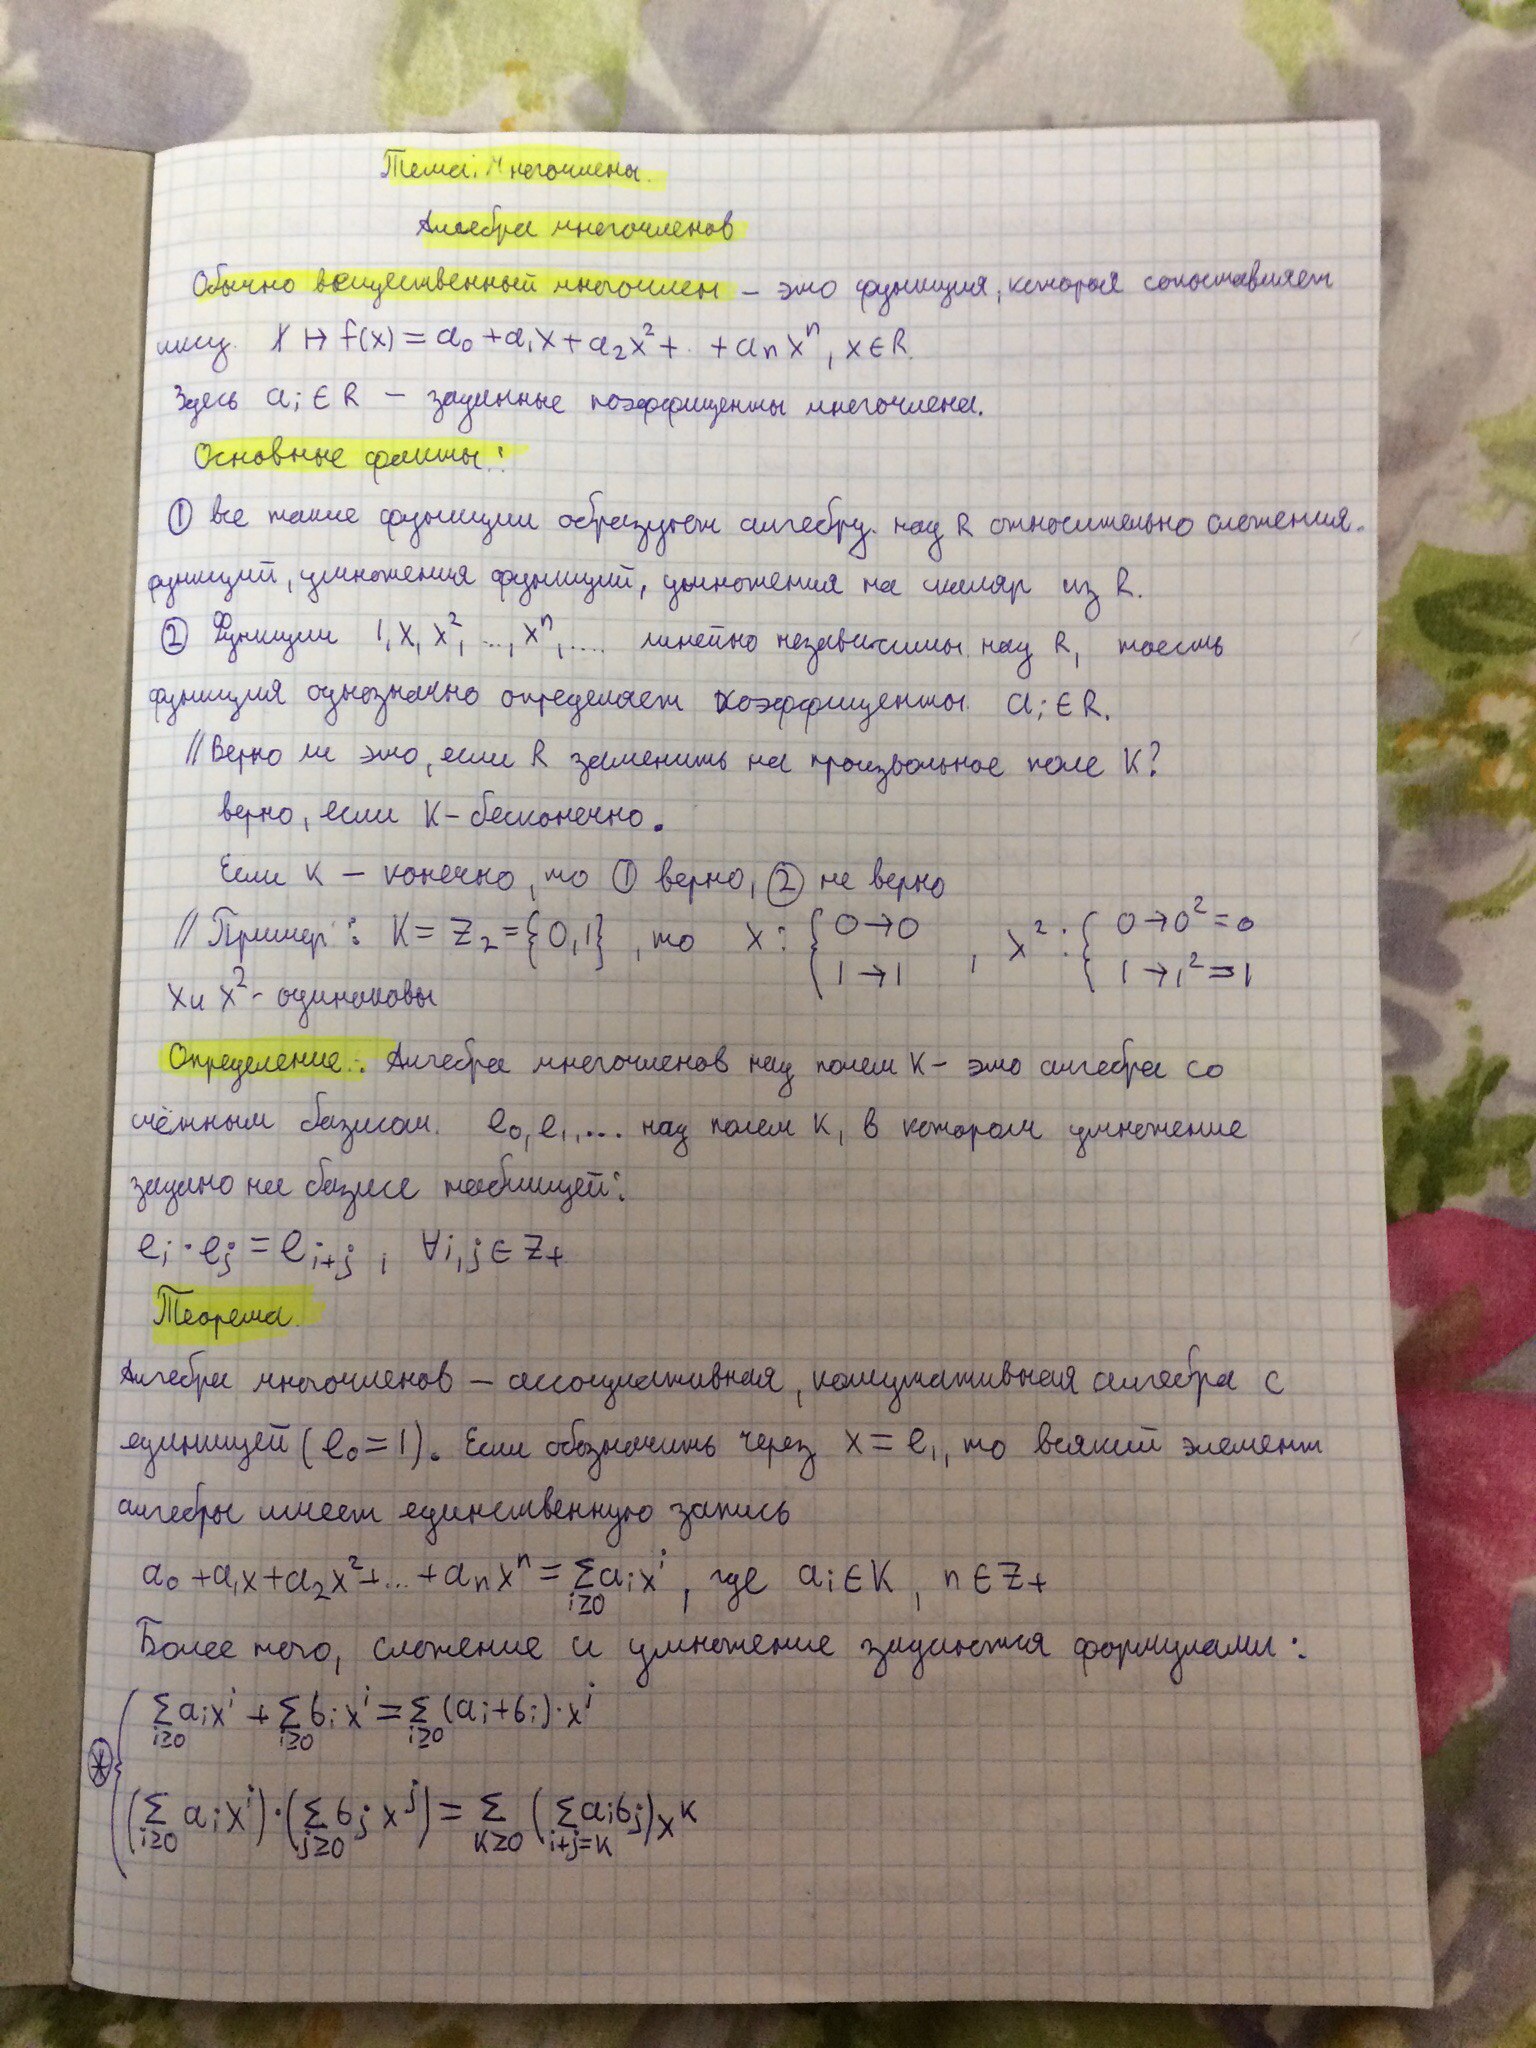 Тема: Многочлены.
Алгебра многочленов
Обычно вещественный многочлен – это функция, которая сопоставляет
иксу x ↦ f(x) = a₀ + a₁x + a₂x² + .. + aₙxⁿ, x ∈ R.
Здесь aᵢ ∈ R – заданные коэффициенты многочлена.
Основные факты:
① все такие функции образуют алгебру над R относительно сложения
функций, умножения функций, умножения на скаляр из R.
② Функции 1, x, x², ..., xⁿ, .... линейно независимы над R, тоесть
функция однозначно определяет коэффициенты aᵢ ∈ R.
// Верно ли это, если R заменить на произвольное поле K?
верно, если K – бесконечно.
Если K – конечно, то ① верно, ② не верно
// Пример: K = Z₂ = {0, 1}, то x: { 0→0 1→1 , x²: { 0→0² = 0 1→1² = 1
x и x² - одинаковы
Определение: Алгебра многочленов над полем K – это алгебра со
счётным базисом e₀, e₁, ... над полем K, в котором умножение
задано на базисе таблицей:
eᵢ · eⱼ = eᵢ₊ⱼ, ∀i, j ∈ Z₊
Теорема.
Алгебра многочленов – ассоциативная, комутативная алгебра с
единицей (e₀ = 1). Если обозначить через x = e₁, то всякий элемент
алгебры имеет единственную запись
a₀ + a₁x + a₂x² + ... + aₙxⁿ = Σ_{i≥0} aᵢxⁱ, где aᵢ ∈ K, n ∈ Z₊
Более того, сложение и умножение задаются формулами:
Σ_{i≥0} aᵢxⁱ + Σ_{i≥0} bᵢxⁱ = Σ_{i≥0} (aᵢ + bᵢ) · xⁱ
⊛ {
(Σ_{i≥0} aᵢxⁱ) · (Σ_{j≥0} bⱼxʲ) = Σ_{k≥0} (Σ_{i+j=k} aᵢbⱼ) xᵏ